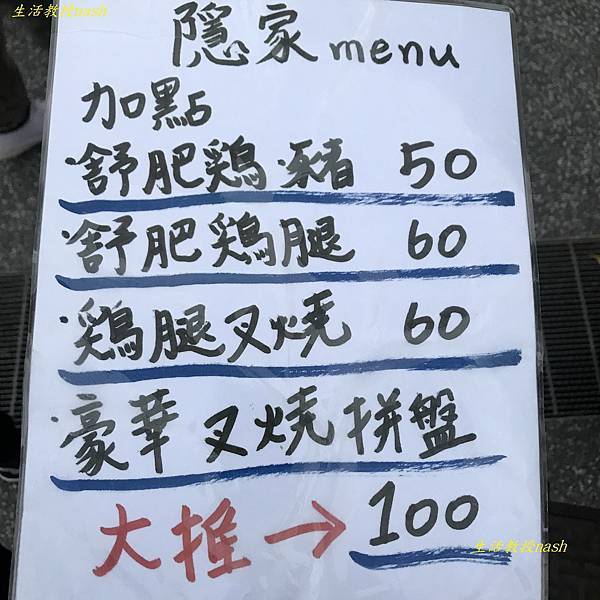 生活教授nash
隱家 menu
加點
·舒肥鶏·豬 50
·舒肥鶏腿 60
·鶏腿叉燒 60
·豪華叉燒拼盤
大推→100
生活教授nash